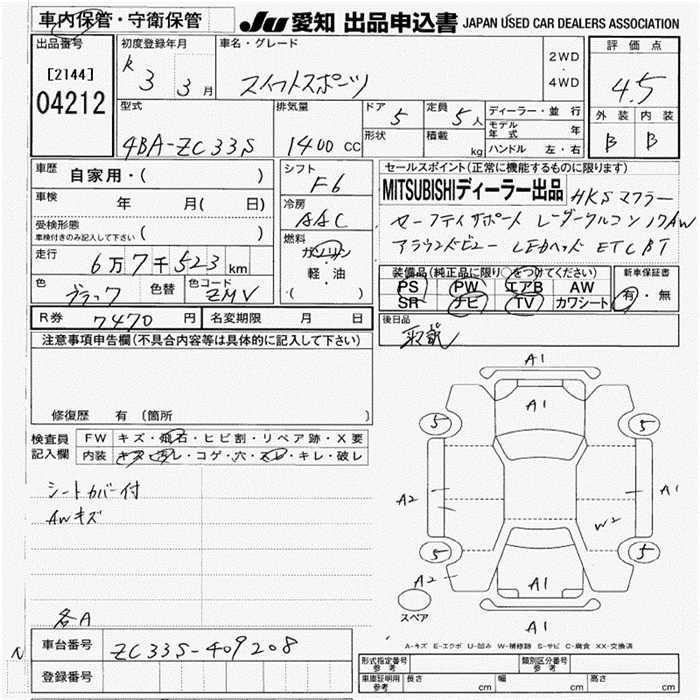 車内保管・守衛保管
JU 愛知 出品申込書 JAPAN USED CAR DEALERS ASSOCIATION
出品番号
[2144]
04212
初度登録年月
R 3 3月
車名・グレード
スイフトスポーツ
2WD
・
4WD
評価点
4.5
外装 内装
B B
型式
4BA-ZC33S
排気量
1400 CC
ドア 5
形状
定員 5人
積載 kg
ディーラー・並行
モデル年式 年
ハンドル 左・右
車歴 自家用・( )
車検 年 月( 日)
受検形態
車検付きのみ記入して下さい ( )
走行 6万7千523km
色 ブラック 色替 色コード ZMV
シフト F6
冷房 AAC
燃料
ガソリン
軽・油
・( )
セールスポイント(正常に機能するものに限ります)
MITSUBISHIディーラー出品 HKSマフラー
セーフティサポート レーダークルコン 17AW
アラウンドビュー LEDヘッド ETC BT
装備品(純正品に限り○をつけてください)
PS PW エアB AW
SR ナビ TV カワシート
新車保証書
有・無
R券 7470円 名変期限 月 日
後日品
取説
注意事項申告欄(不具合内容等は具体的に記入して下さい)
修復歴 有(箇所 )
検査員記入欄
FW キズ・飛石・ヒビ割・リペア跡・X要
内装 キズ・汚レ・コゲ・穴・スレ・キレ・破レ
シートカバー付
AWキズ
各A
A1
A1
5 5
A2 A1
W2
5 5
A2 A1
スペア
A1
A-キズ E-エクボ U-凹み W-補修跡 S-サビ C-腐食 XX-交換済
N
車台番号 ZC33S-409208
登録番号
形式指定番号 参考
類別区分番号 参考
車庫証明用 参考 長さ cm 幅 cm 高さ cm